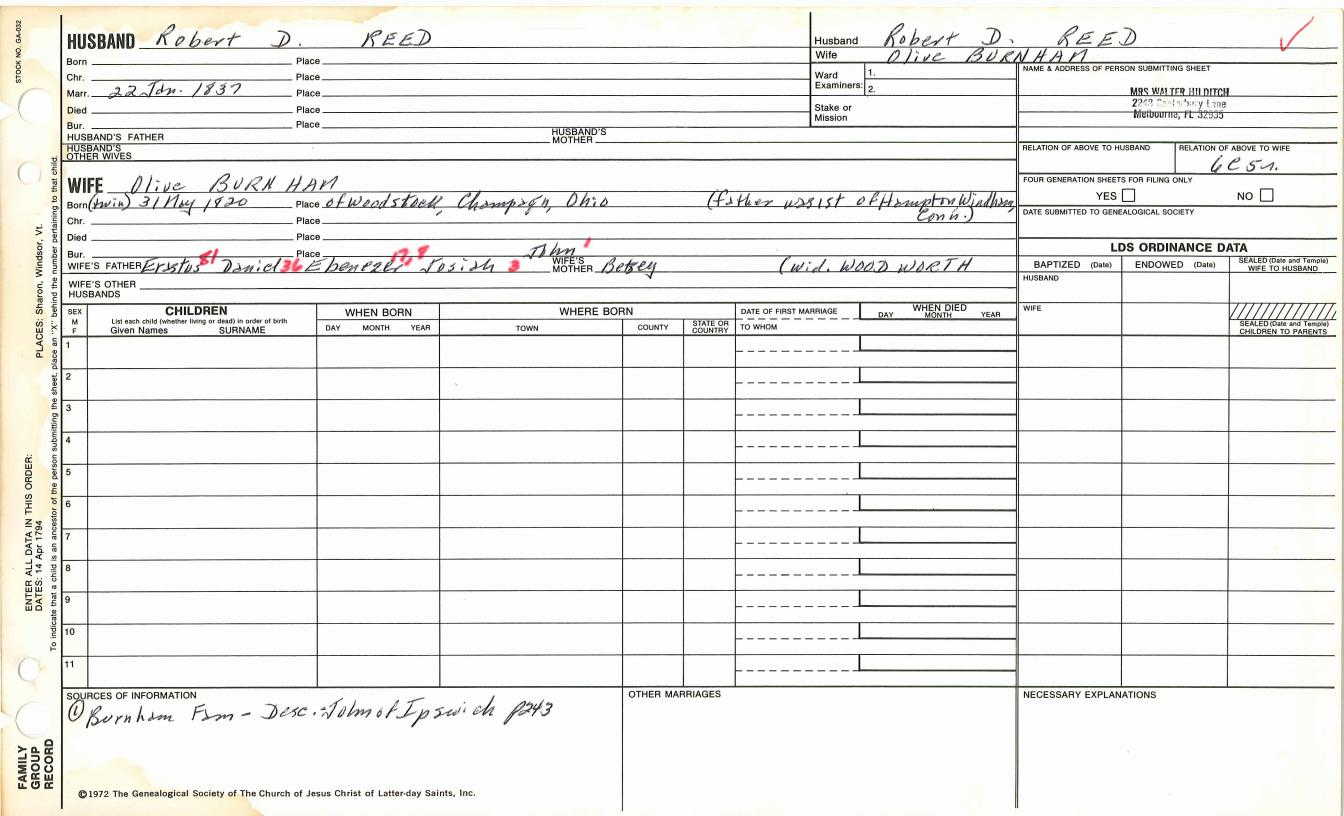 STOCK NO. GA-032
HUSBAND Robert D. REED
Born Place
Chr. Place
Marr. 22 Jan. 1837 Place
Died Place
Bur. Place
HUSBAND'S FATHER HUSBAND'S MOTHER
HUSBAND'S OTHER WIVES
Husband Robert D. REED
Wife Olive BURNHAM
Ward Examiners: 1.
2.
Stake or Mission
NAME & ADDRESS OF PERSON SUBMITTING SHEET
MRS WALTER HILDITCH
Lane
Melbourne, FL 32935
RELATION OF ABOVE TO HUSBAND RELATION OF ABOVE TO WIFE
6C5r.
FOUR GENERATION SHEETS FOR FILING ONLY
YES NO
DATE SUBMITTED TO GENEALOGICAL SOCIETY
WIFE Olive BURNHAM
Born (twin) 31 May 1820 Place of Woodstock, Champagn, Ohio (father was 1st of Hampton Windham, Conn.)
Chr. Place
Died Place
Bur. Place
WIFE'S FATHER Erastus 81 Daniel 36 Ebenezer 17, 9 Josiah 3 John 1 WIFE'S MOTHER Betsey (wid. WOODWORTH
WIFE'S OTHER HUSBANDS
LDS ORDINANCE DATA
BAPTIZED (Date) ENDOWED (Date) SEALED (Date and Temple) WIFE TO HUSBAND
HUSBAND
WIFE
SEALED (Date and Temple) CHILDREN TO PARENTS
SEX M F
CHILDREN
List each child (whether living or dead) in order of birth
Given Names SURNAME
WHEN BORN
DAY MONTH YEAR
WHERE BORN
TOWN COUNTY STATE OR COUNTRY
DATE OF FIRST MARRIAGE
TO WHOM
WHEN DIED
DAY MONTH YEAR
1
2
3
4
5
6
7
8
9
10
11
SOURCES OF INFORMATION
① Burnham Fam - Desc. - John of Ipswich p243
OTHER MARRIAGES
NECESSARY EXPLANATIONS
©1972 The Genealogical Society of The Church of Jesus Christ of Latter-day Saints, Inc.
FAMILY GROUP RECORD
ENTER ALL DATA IN THIS ORDER:
DATES: 14 Apr 1794
PLACES: Sharon, Windsor, Vt.
To indicate that a child is an ancestor of the person submitting the sheet, place an "X" behind the number pertaining to that child.